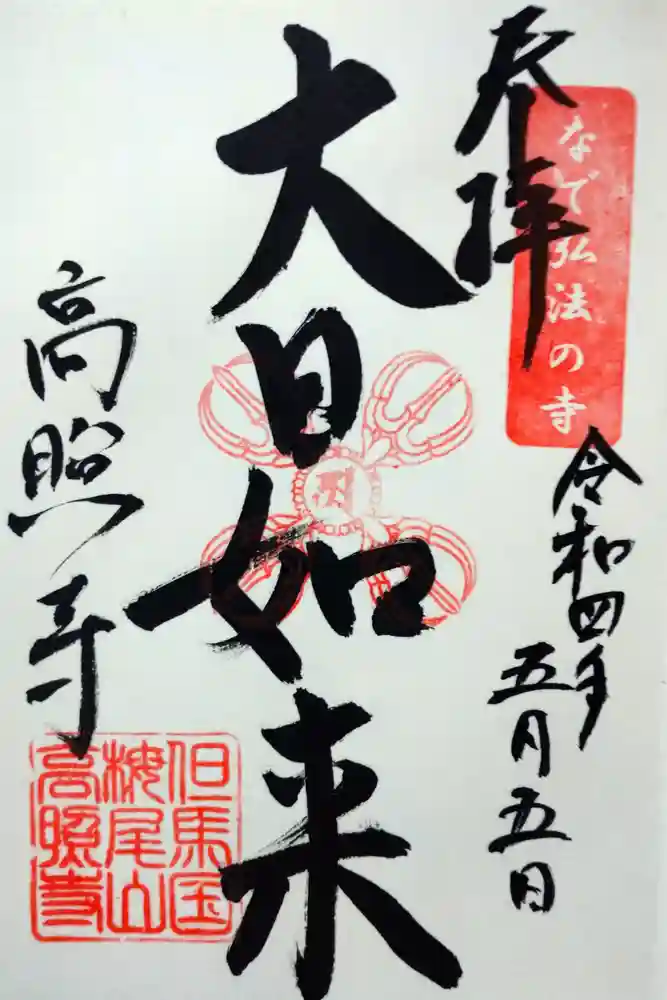 奉拝
なで弘法の寺
令和四年
五月五日
大日如来
高照寺
但馬国
桜尾山
高照寺